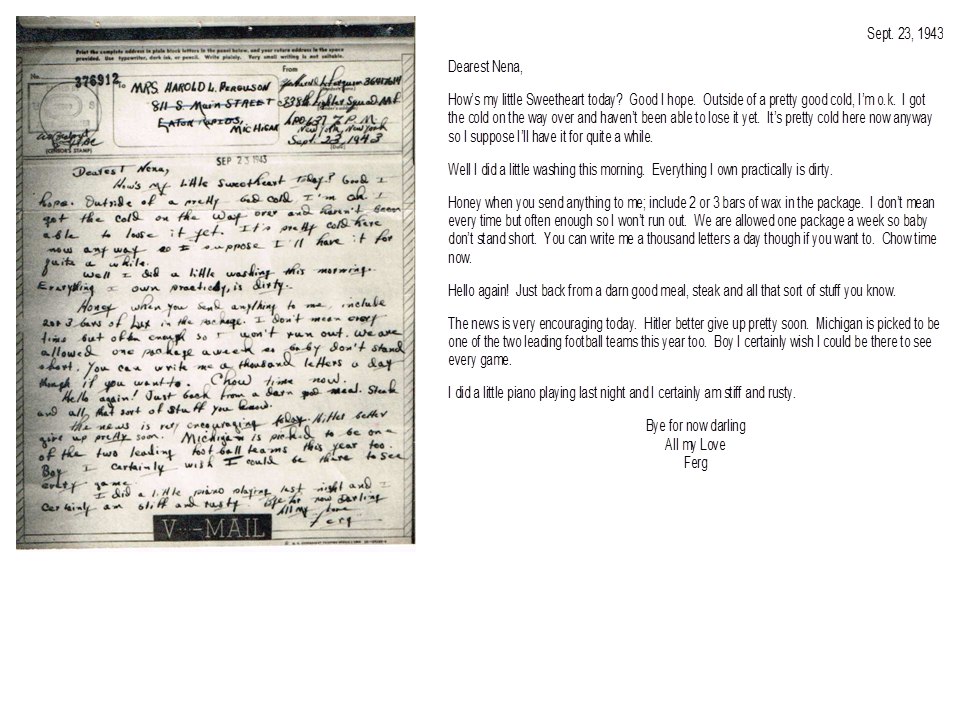 Print the complete address in plain block letters in the panel below, and your return address in the space
provided. Use typewriter, dark ink, or pencil. Write plainly. Very small writing is not suitable.
No.
376912
To
MRS HAROLD L. FERGUSON
811 S. MAIN STREET
EATON RAPIDS,
MICHIGAN
(CENSOR'S STAMP)
From
New York, New York
Sept. 23, 1943
(Date)
SEP 23 1943
Dearest Nena,
How's my little Sweetheart today? Good I
hope. Outside of a pretty good cold I'm ok. I
got the cold on the way over and haven't been
able to loose it yet. It's pretty cold here
now any way so I suppose I'll have it for
quite a while.
Well I did a little washing this morning.
Everything I own practically, is dirty.
Honey when you send anything to me, include
2 or 3 bars of Lux in the package. I don't mean every
time but often enough so I won't run out. We are
allowed one package a week so baby don't stand
short. You can write me a thousand letters a day
though if you want to. Chow time now.
Hello again! Just back from a darn good meal. Steak
and all that sort of stuff you know.
The news is very encouraging today. Hitler better
give up pretty soon. Michigan is picked to be one
of the two leading foot ball teams this year too.
Boy I certainly wish I could be there to see
every game.
I did a little piano playing last night and I
certainly am stiff and rusty. Bye for now Darling
All my Love
Ferg
V···—MAIL
Sept. 23, 1943
Dearest Nena,
How's my little Sweetheart today?  Good I hope.  Outside of a pretty good cold, I'm o.k.  I got
the cold on the way over and haven't been able to lose it yet.  It's pretty cold here now anyway
so I suppose I'll have it for quite a while.
Well I did a little washing this morning.  Everything I own practically is dirty.
Honey when you send anything to me; include 2 or 3 bars of wax in the package.  I don't mean
every time but often enough so I won't run out.  We are allowed one package a week so baby
don't stand short.  You can write me a thousand letters a day though if you want to.  Chow time
now.
Hello again!  Just back from a darn good meal, steak and all that sort of stuff you know.
The news is very encouraging today.  Hitler better give up pretty soon.  Michigan is picked to be
one of the two leading football teams this year too.  Boy I certainly wish I could be there to see
every game.
I did a little piano playing last night and I certainly am stiff and rusty.
Bye for now darling
All my Love
Ferg